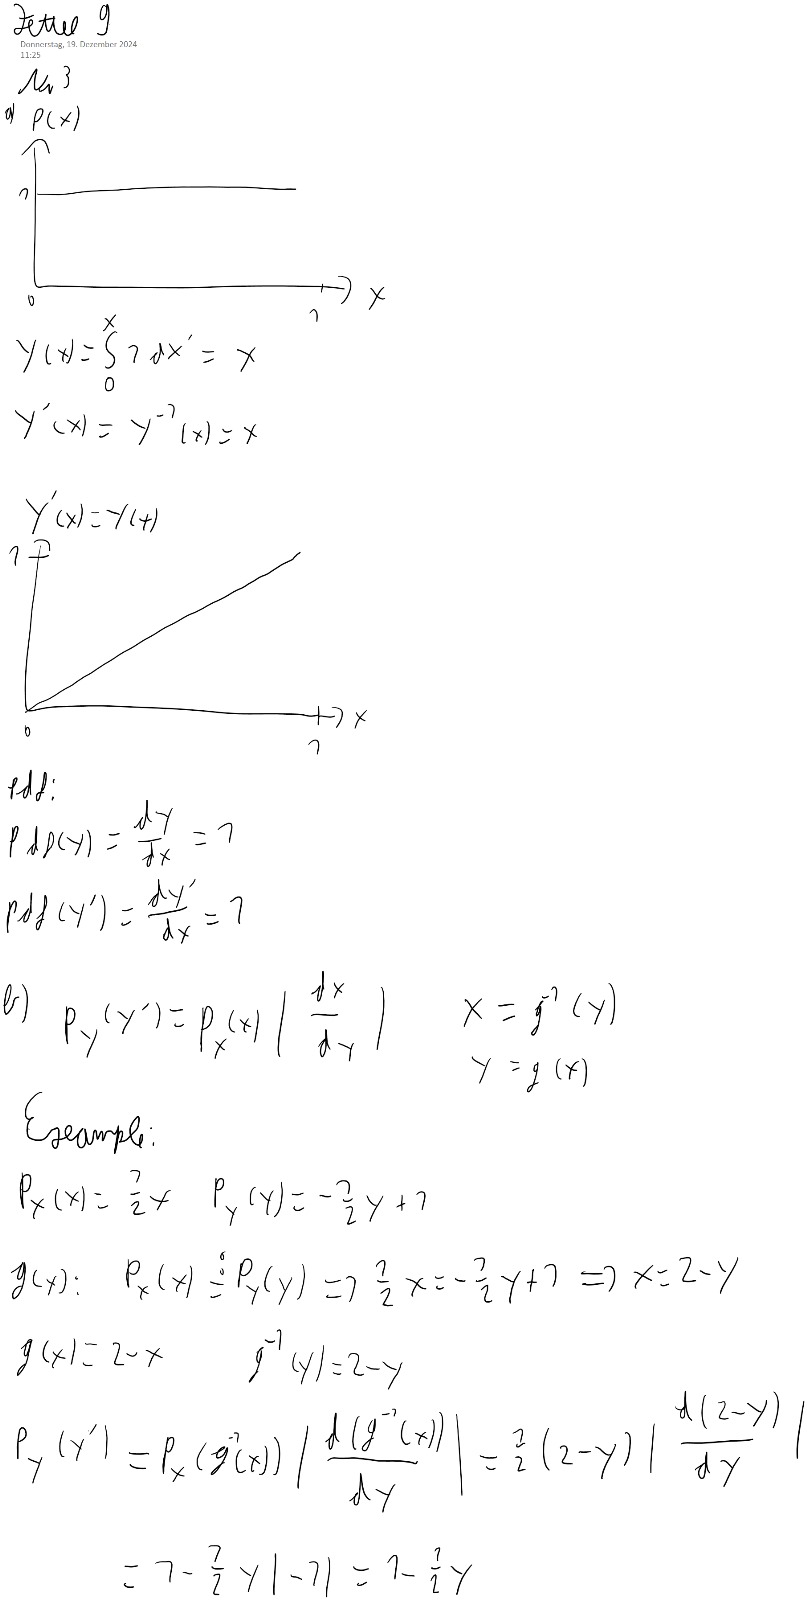 Zettel 9
Donnerstag, 19. Dezember 2024
11:25
Nr 3
a) P(x)
1
0 1 x
Y(x) = ∫₀ˣ 1 dx' = x
Y'(x) = Y⁻¹(x) = x
Y'(x) = Y(x)
1
0 1 x
pdf:
pdf(y) = dy/dx = 1
pdf(y') = dy'/dx = 1
b) P_y(y') = P_x(x) | dx/dy | x = g⁻¹(y)
y = g(x)
Example:
P_x(x) = 1/2 x P_y(y) = -1/2 y + 1
g(x): P_x(x) =! P_y(y) ⇒ 1/2 x = -1/2 y + 1 ⇒ x = 2 - y
g(x) = 2 - x g⁻¹(y) = 2 - y
P_y(y') = P_x(g⁻¹(x)) | d(g⁻¹(x))/dy | = 1/2 (2 - y) | d(2 - y)/dy |
= 1 - 1/2 y |-1| = 1 - 1/2 y